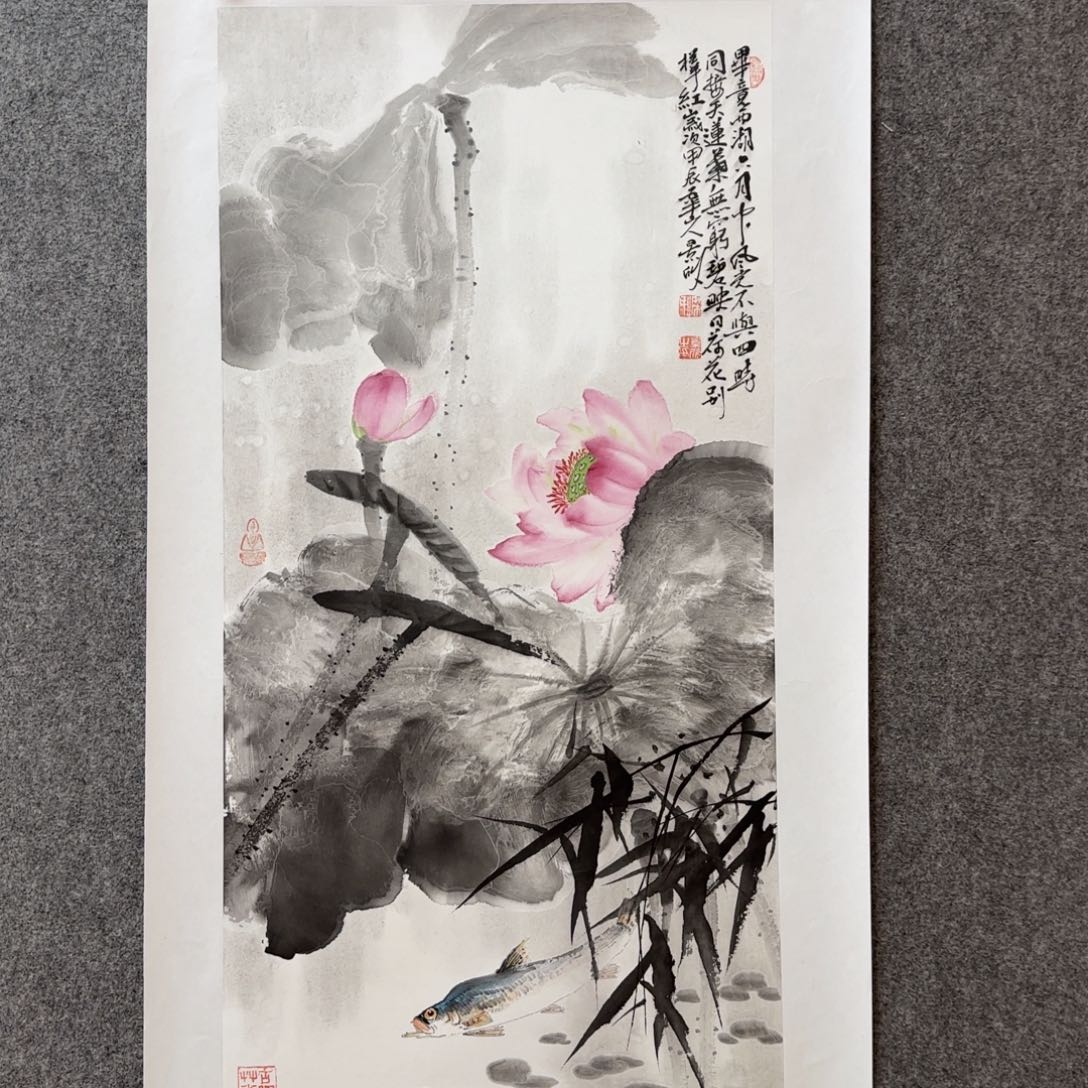 畢竟西湖六月中風光不與四時
同接天蓮葉無窮碧映日荷花別
樣紅歲次甲辰山人景